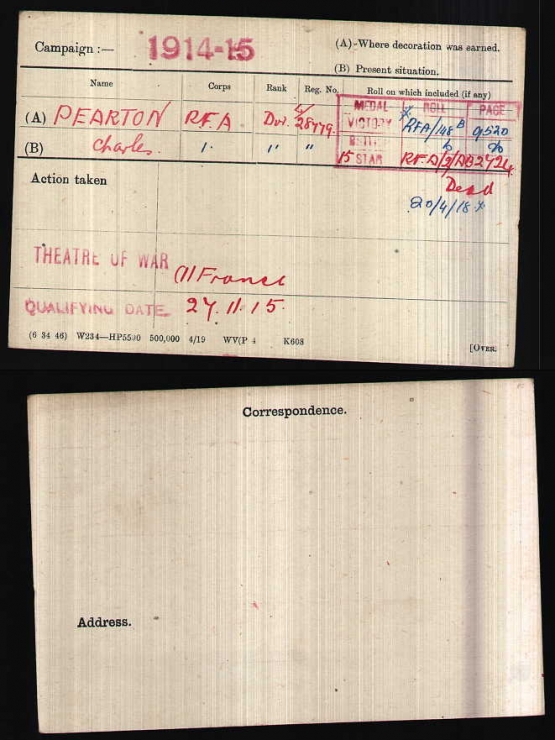 Campaign :— 1914-15
(A)-Where decoration was earned.
(B) Present situation.
Name Corps Rank Reg. No. Roll on which included (if any)
MEDAL ROLL PAGE
(A) PEARTON RFA Dvr. L/28779 VICTORY RFA/148 B 9520
(B) Charles 1. " " BRITISH do do
15 STAR RFA/3/AB 2724
Dead
20/4/18
Action taken
THEATRE OF WAR (1) France
QUALIFYING DATE 27.11.15.
(6 34 46) W234—HP5590 500,000 4/19 K608
[OVER.
Correspondence.
Address.